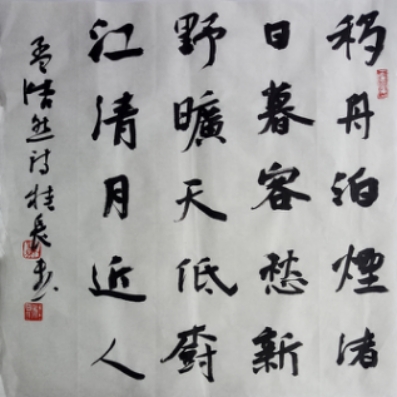 移舟泊煙渚
日暮客愁新
野曠天低樹
江清月近人
孟浩然诗桂長书